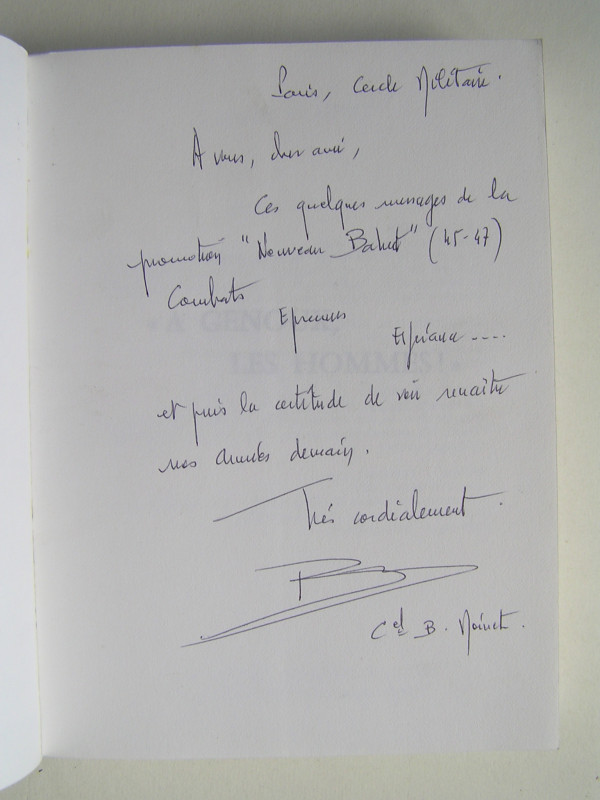 Paris, Cercle Militaire.
À vous, cher ami,
Ces quelques messages de la
promotion "Nouveau Bahut" (45-47)
Combats
Epreuves
Espérance ....
et puis la certitude de voir renaître
nos armées demain.
Très cordialement.
Cel B. Moinet.
"A GENOUX,
LES HOMMES!"